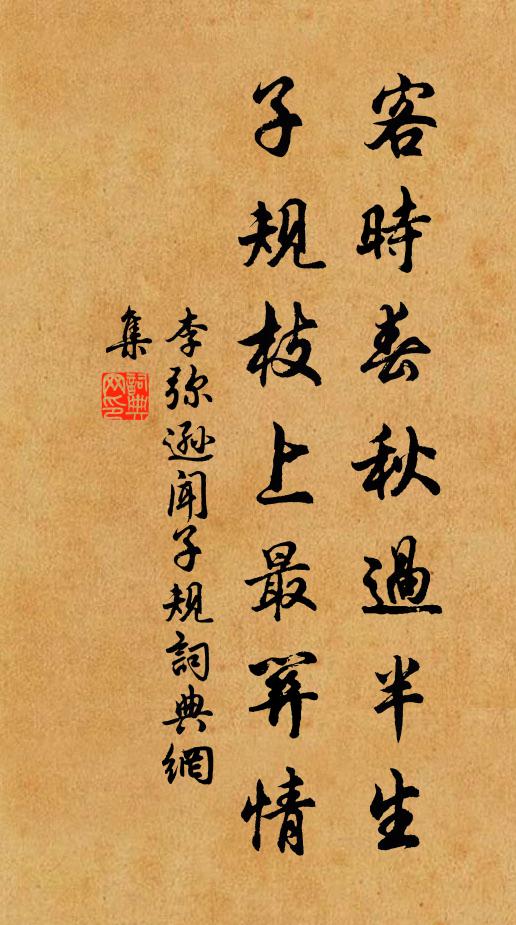 客時春秋過半生
子規枝上最關情
李弥遜聞子規詞典網
集
詞典
网印